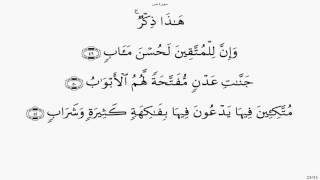 سورة ص
هَـٰذَا ذِكْرٌ ۚ
وَإِنَّ لِلْمُتَّقِينَ لَحُسْنَ مَـَٔابٍ ﴿٤٩﴾
جَنَّـٰتِ عَدْنٍ مُّفَتَّحَةً لَّهُمُ ٱلْأَبْوَٰبُ ﴿٥٠﴾
مُتَّكِـِٔينَ فِيهَا يَدْعُونَ فِيهَا بِفَـٰكِهَةٍ كَثِيرَةٍ وَشَرَابٍ ﴿٥١﴾